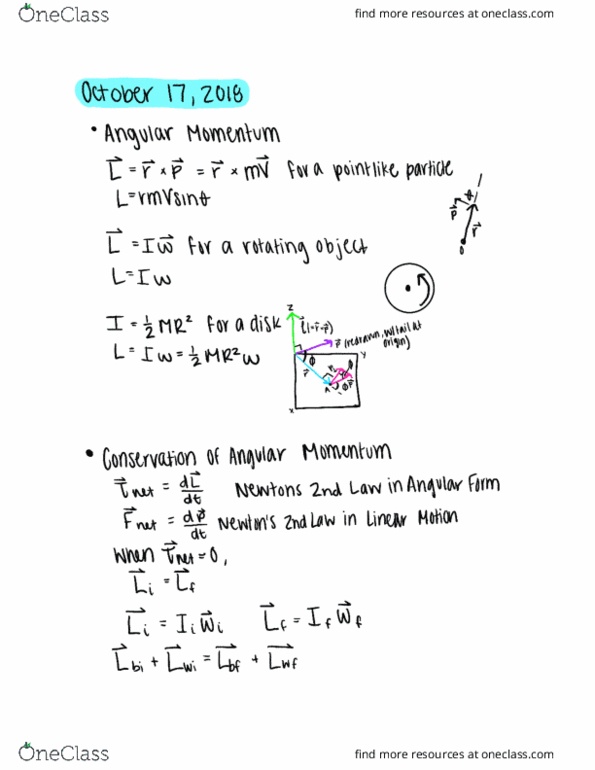 OneClass
find more resources at oneclass.com
October 17, 2018
• Angular Momentum
L⃗ = r⃗ × p⃗ = r⃗ × mv⃗ for a pointlike particle
L = rmVsinθ
p⃗
r⃗
O
L⃗ = Iω⃗ for a rotating object
L = Iω
I = ½MR² for a disk
L = Iω = ½MR²ω
z
p⃗ (redrawn, w/ tail at
origin)
y
ϕ
r⃗
A
ϕ
p⃗
x
• Conservation of Angular Momentum
τ⃗net = dL⃗/dt Newtons 2nd Law in Angular Form
F⃗net = dp⃗/dt Newton's 2nd Law in Linear Motion
when τ⃗net = 0,
L⃗i = L⃗f
L⃗i = Iiω⃗i L⃗f = Ifω⃗f
L⃗bi + L⃗wi = L⃗bf + L⃗wf
OneClass
find more resources at oneclass.com